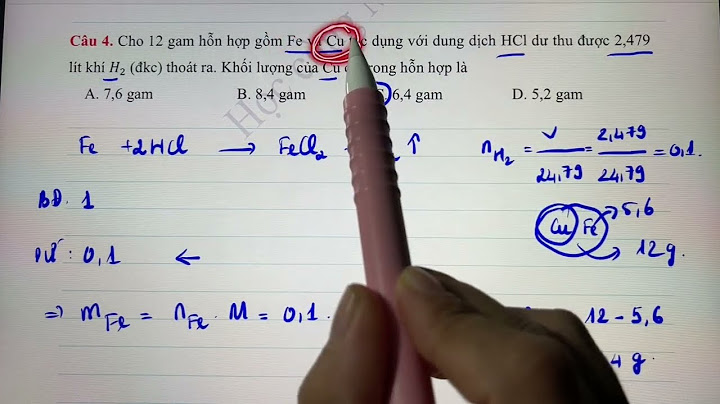 Câu 4. Cho 12 gam hỗn hợp gồm Fe Cu dụng với dung dịch HCl dư thu được 2,479
lít khí H₂ (đkc) thoát ra. Khối lượng của Cu trong hỗn hợp là
A. 7,6 gam B. 8,4 gam 6,4 gam D. 5,2 gam
Fe + 2HCl → FeCl₂ ↑
n_H₂ = V/24,79 = 2,479/24,79 = 0,1.
BĐ. 1
Cu Fe 5,6
12g.
: 0,1 ←
⇒ m_Fe = n_Fe . M = 0,1.
12 - 5,6
4 g.